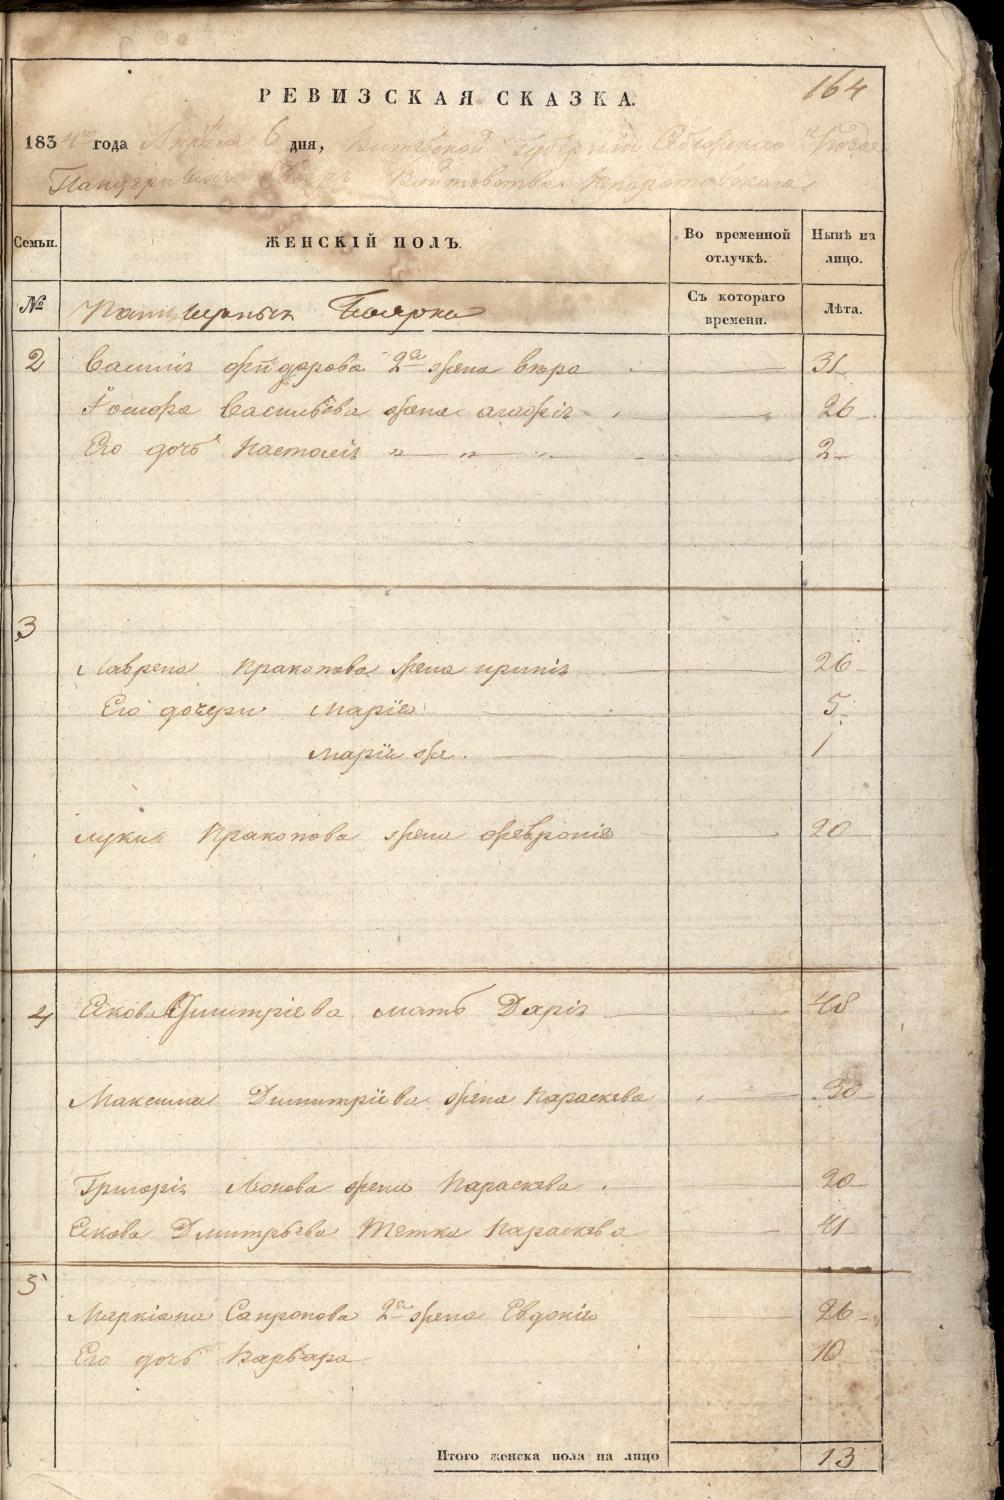 164
РЕВИЗСКАЯ СКАЗКА.
1834го года Апреля 6 дня, Витебской Губернии Себежского
Панцерныхъ Бояръ Войтовства Непоротовскаго
Семьи.
ЖЕНСКІЙ ПОЛЪ.
Во временной отлучкѣ.
Нынѣ на лицо.
№
Панцерныхъ Бояръ
Съ котораго времени.
Лѣта.
2 Василія Фядорова 2ая жена вѣра 31
Іосифа Васильева жена агафія 26
Его дочь Настасія „ „ „ 2
3
Лаврена Пракопова жена иринія 26
Его дочери Марія 5
Марія же. 1
луки Пракопова жена февронія 20
4 Якова Дмитріева мать Дарія 48
Максима Димитріева жена Параскева 30
Григорія жена Параскева 20
Якова Дмитрѣева Тетка Параскева 41
5
Маркіана Сапронова 2ая жена Евдокія 26
Его дочь Варвара 10
Итого женска пола на лицо 13